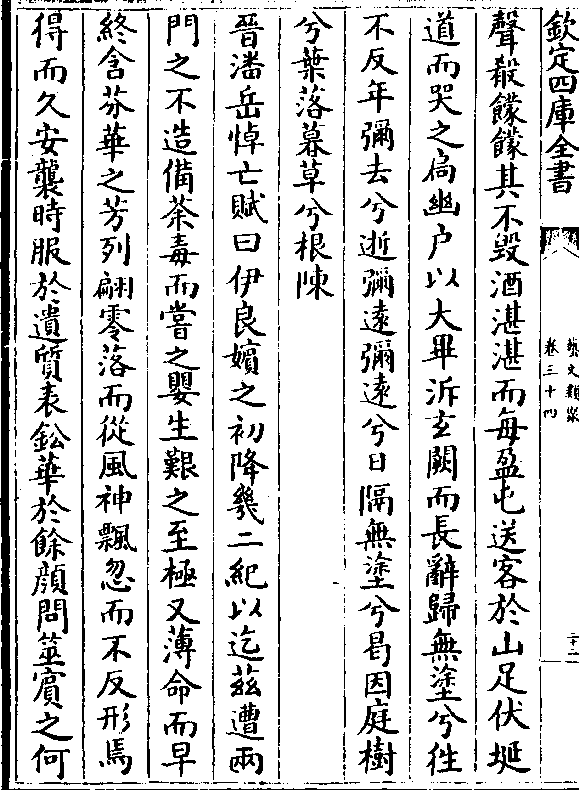 欽定四庫全書
藝文類聚
卷三十四
二十二
聲殽饛饛其不毀酒湛湛而每盈屯送客於山足伏埏
道而哭之扃幽户以大畢泝玄闕而長辭歸無塗兮徃
不反年彌去兮逝彌遠彌遠兮日隔無塗兮曷因庭樹
兮葉落暮草兮根陳
晉潘岳悼亡賦曰伊良嬪之初降幾二紀以迄兹遭兩
門之不造備荼毒而嘗之嬰生艱之至極又薄命而早
終含芬華之芳列翩零落而從風神飄忽而不反形焉
得而久安襲時服於遺質表鈆華於餘顔問筮賔之何